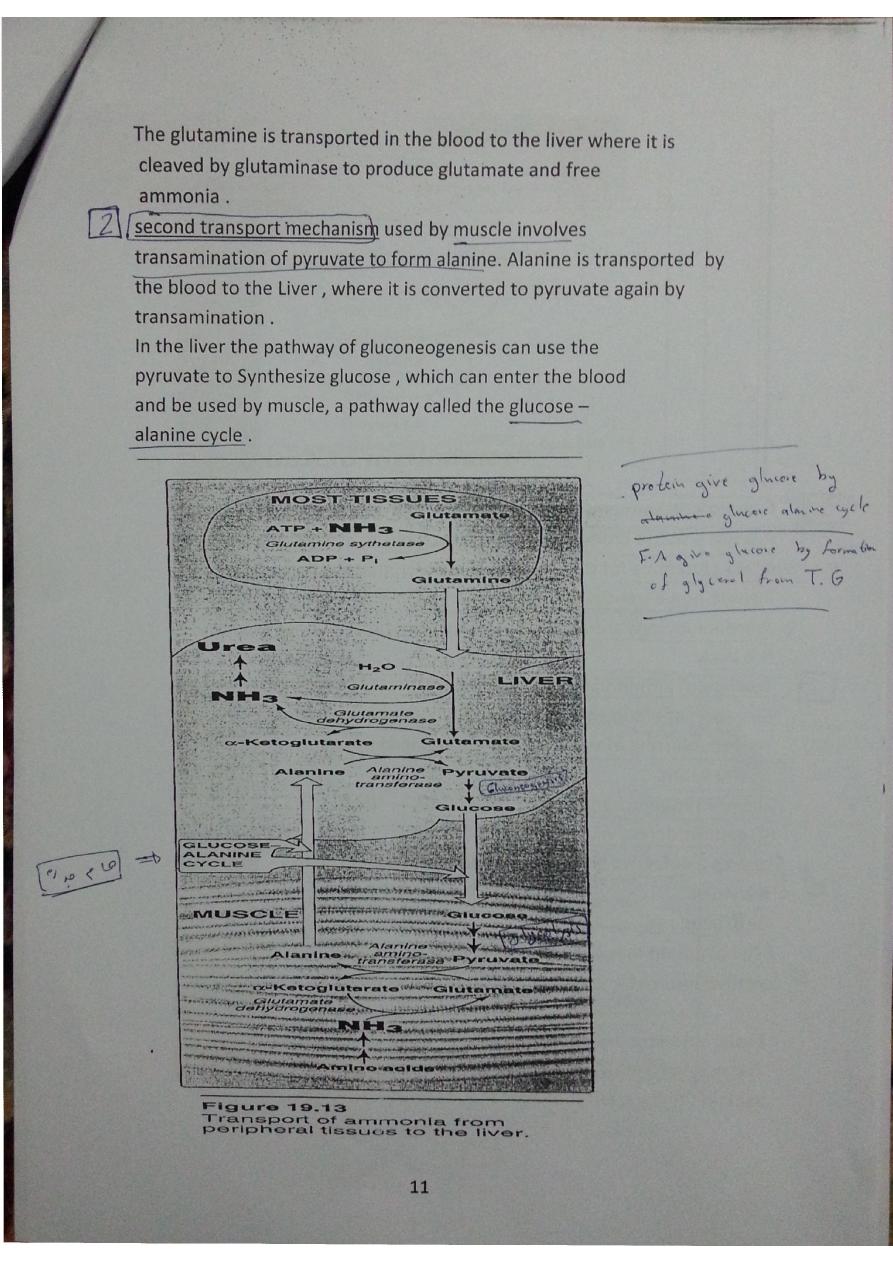 The glutamine is transported in the blood to the liver where it is
cleaved by glutaminase to produce glutamate and free
ammonia .
2 second transport mechanism used by muscle involves
transamination of pyruvate to form alanine. Alanine is transported by
the blood to the Liver , where it is converted to pyruvate again by
transamination .
In the liver the pathway of gluconeogenesis can use the
pyruvate to Synthesize glucose , which can enter the blood
and be used by muscle, a pathway called the glucose –
alanine cycle .
protein give glucose by
glucose alanine cycle
F.A give glucose by formation
of glycerol from T.G
MOST TISSUES
Glutamate
ATP + NH3
Glutamine sythetase
ADP + Pi
Glutamine
Urea
H2O
Glutaminase
LIVER
NH3
Glutamate
dehydrogenase
α-Ketoglutarate Glutamate
Alanine Alanine Pyruvate
amino-
transferase
Gluconeogenesis
Glucose
GLUCOSE-
ALANINE
CYCLE
هام جدا
MUSCLE
Glucose
Glycolysis
Alanine
Alanine amino-
transferase Pyruvate
α-Ketoglutarate Glutamate
Glutamate
dehydrogenase
NH3
Amino acids
Figure 19.13
Transport of ammonia from
peripheral tissues to the liver.
11